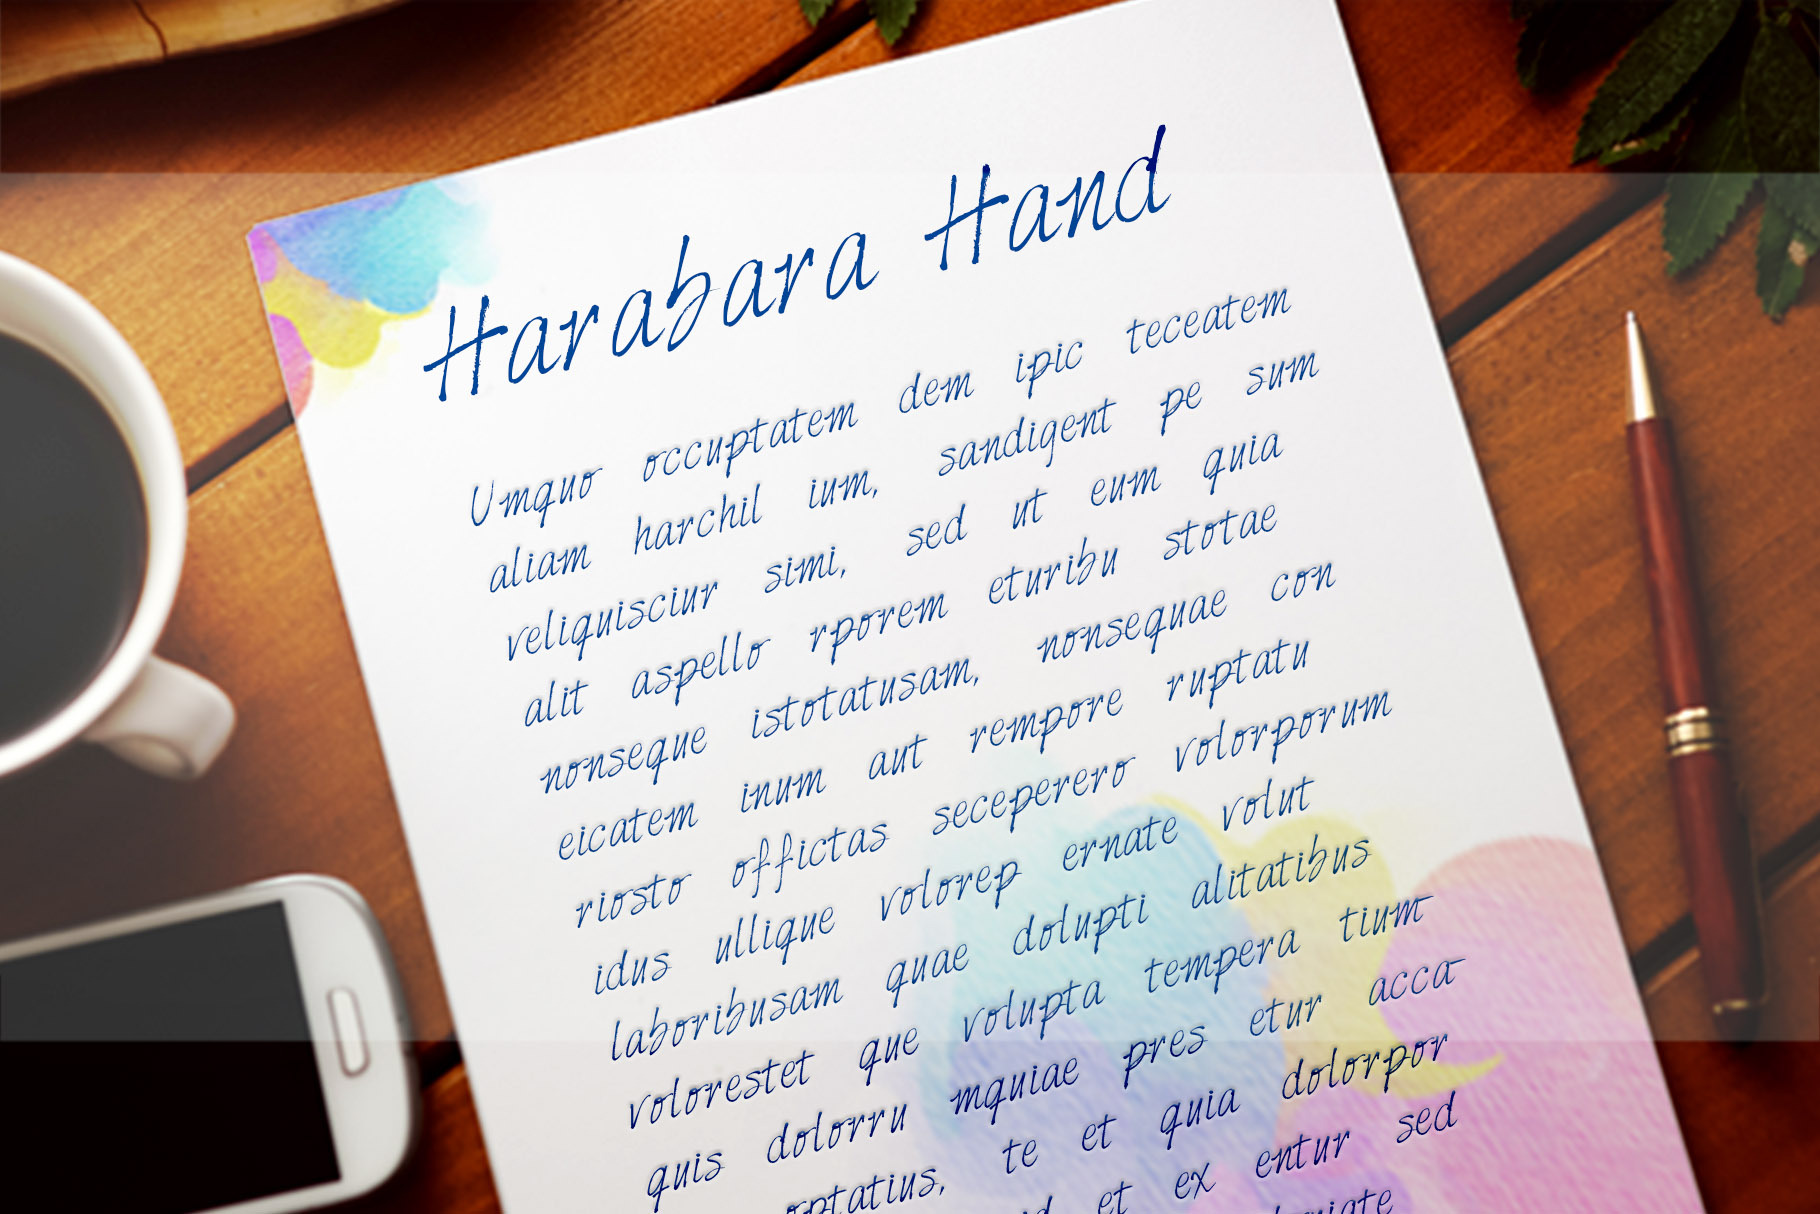 Harabara Hand
Umquo occuptatem dem ipic teceatem
aliam harchil ium, sandigent pe sum
veliquisciur simi, sed ut eum quia
alit aspello rporem eturibu stotae
nonseque istotatusam, nonsequae con
eicatem inum aut rempore ruptatu
riosto offictas seceperero volorporum
idus ullique volorep ernate volut
laboribusam quae dolupti alitatibus
volorestet que volupta tempera tium
quis dolorru mquiae pres etur acca
te et quia dolorpor
et ex entur sed